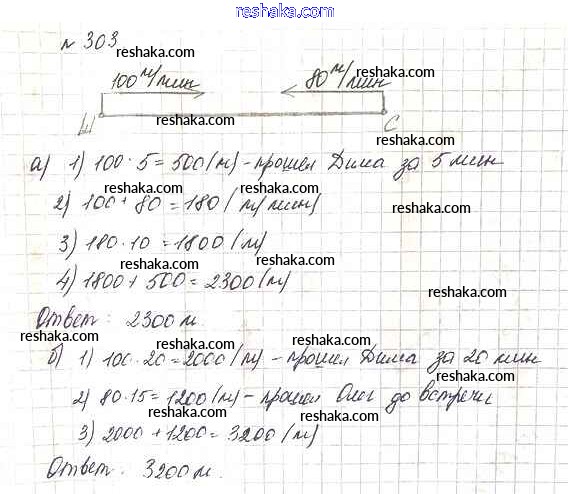 reshaka.com
№ 303
reshaka.com
100 м/мин 80 м/мин
reshaka.com
reshaka.com
reshaka.com
Ш С
reshaka.com
а) 1) 100 · 5 = 500 (м) - прошел Дима за 5 мин
reshaka.com
reshaka.com
2) 100 + 80 = 180 (м/мин)
reshaka.com
3) 180 · 10 = 1800 (м)
reshaka.com
4) 1800 + 500 = 2300 (м)
reshaka.com
reshaka.com
Ответ: 2300 м.
reshaka.com
reshaka.com
б) 1) 100 · 20 = 2000 (м) - прошел Дима за 20 мин
reshaka.com
reshaka.com
2) 80 · 15 = 1200 (м) - прошел Олег до встречи
reshaka.com
reshaka.com
3) 2000 + 1200 = 3200 (м)
reshaka.com
reshaka.com
Ответ: 3200 м.
reshaka.com
reshaka.com